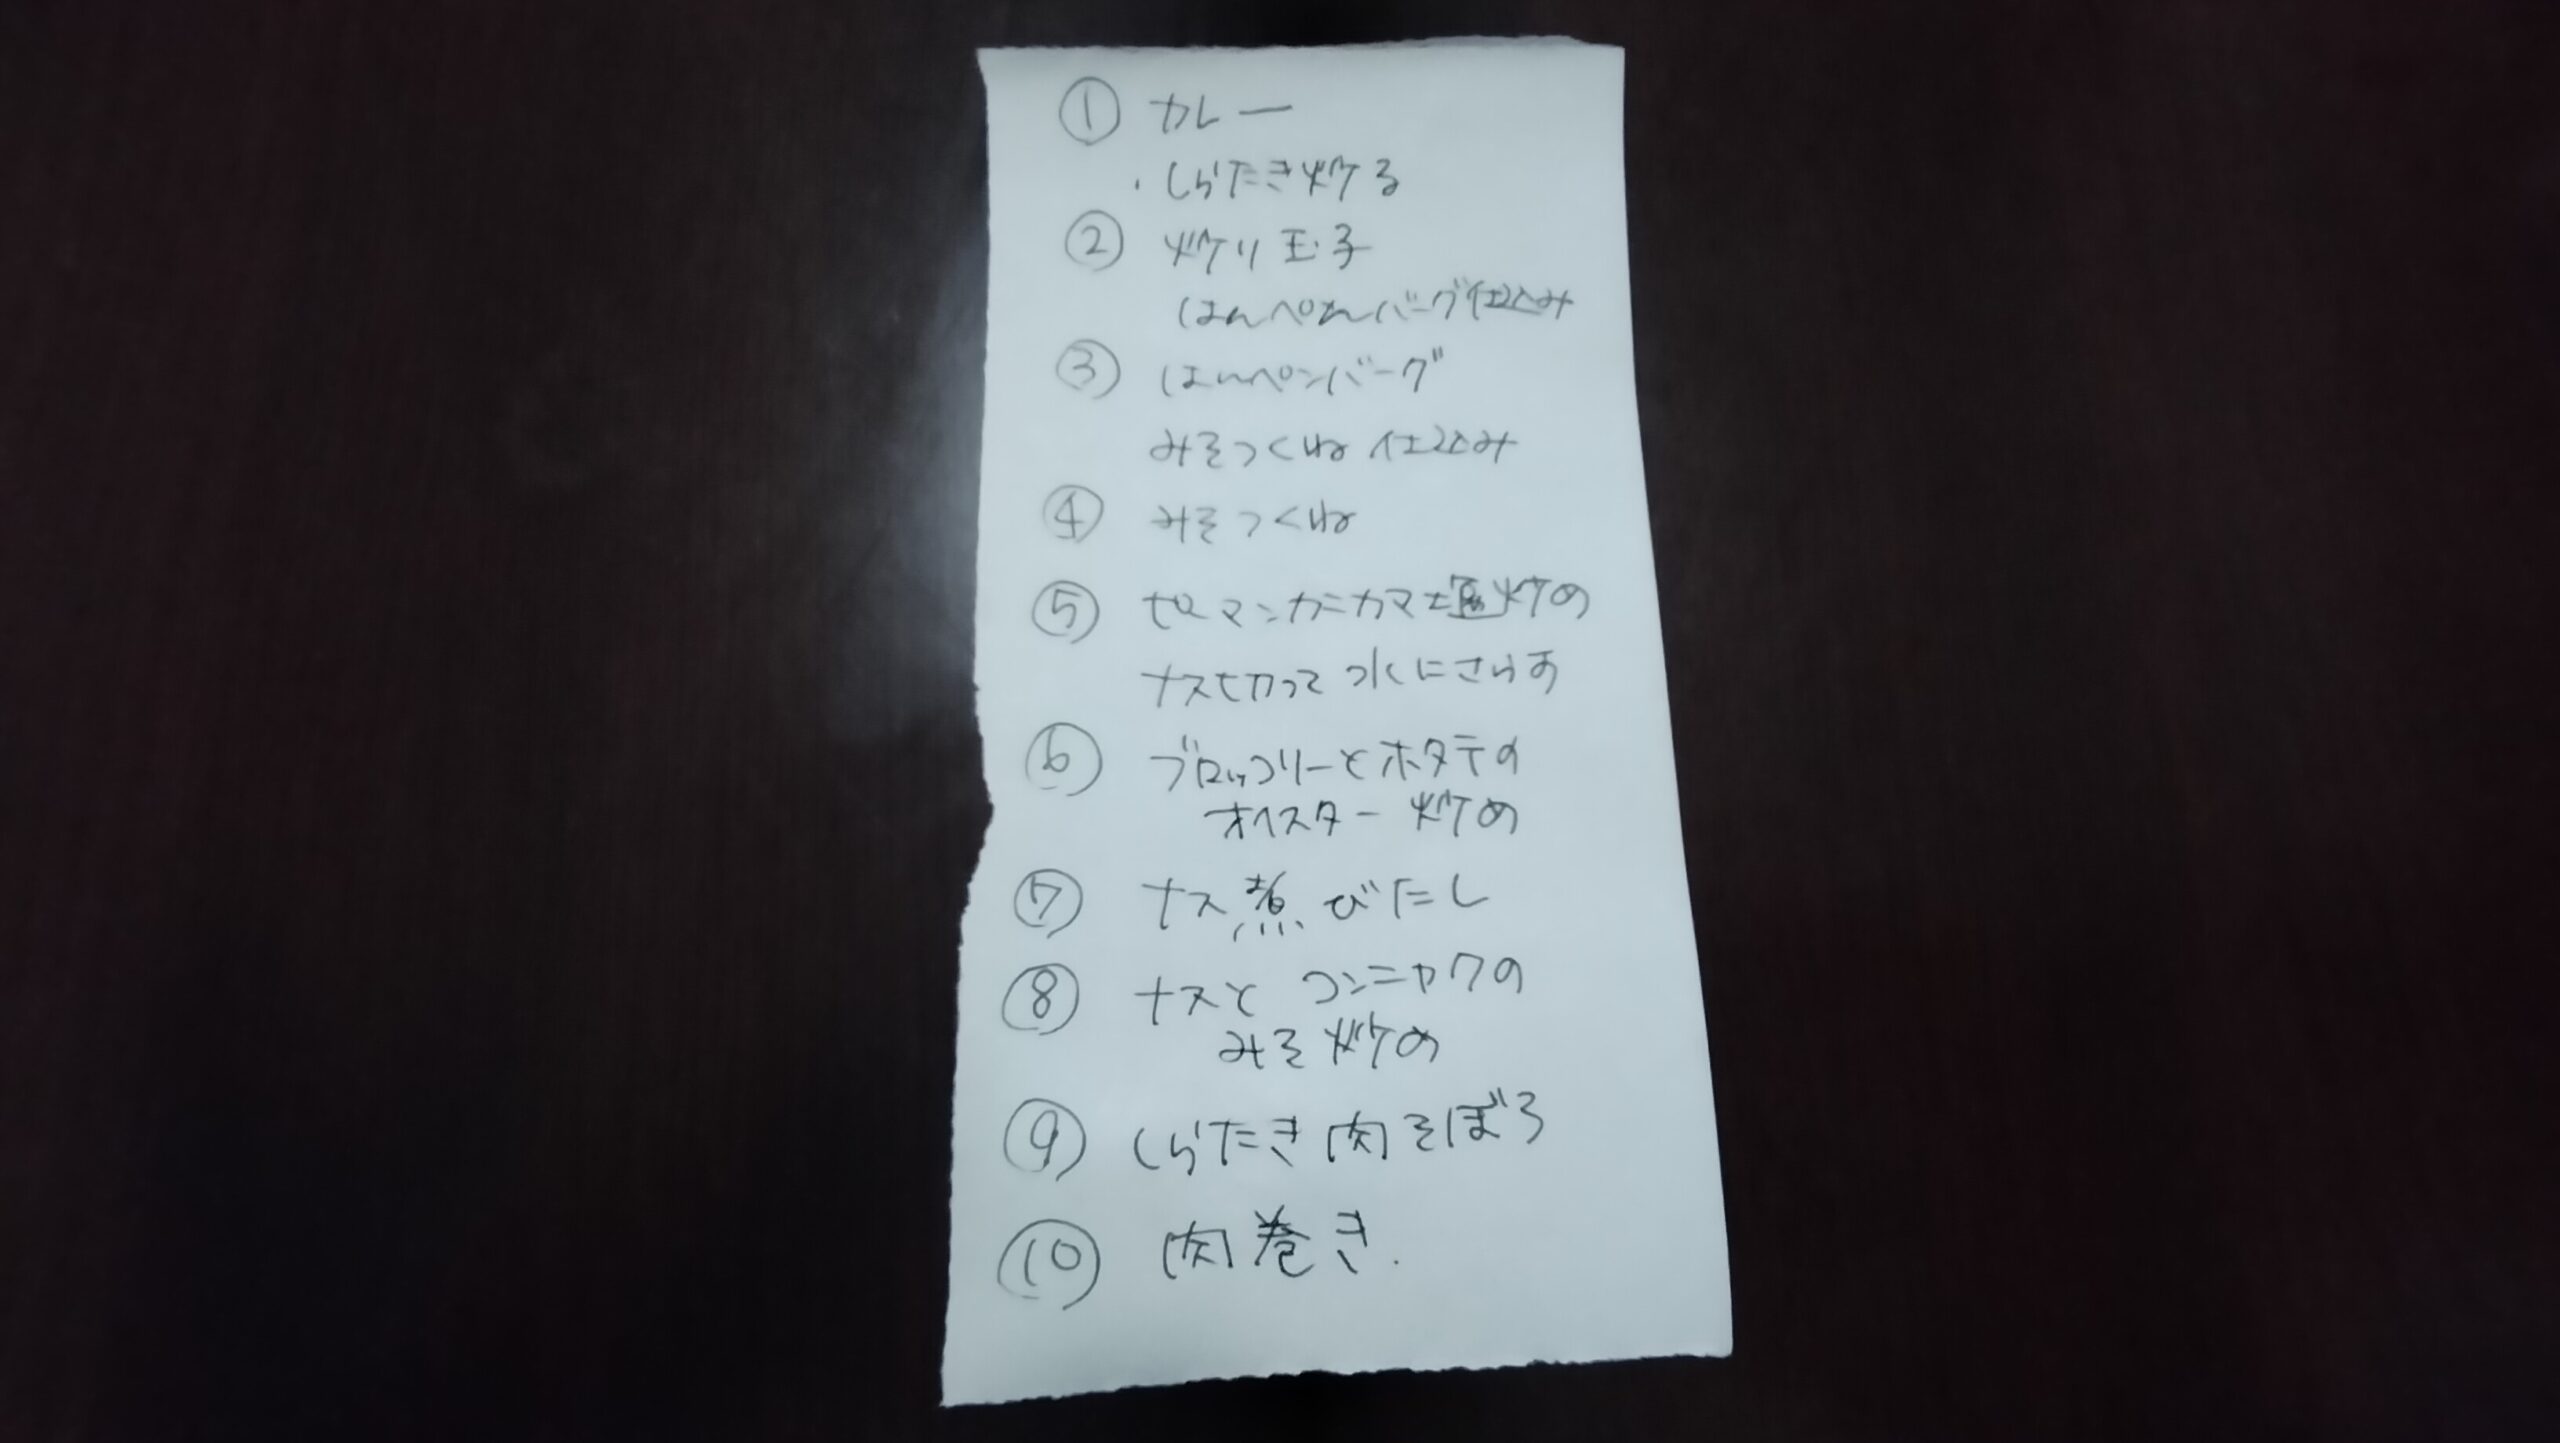 ① カレー
・しらたき炒る
② 炒り玉子
はんぺんバーグ仕込み
③ はんペンバーグ
みそつくね仕込み
④ みそつくね
⑤ ピーマンカニカマ塩炒め
ナス切って水にさらす
⑥ ブロッコリーとホタテの
オイスター炒め
⑦ ナス煮びたし
⑧ ナスとコンニャクの
みそ炒め
⑨ しらたき肉そぼろ
⑩ 肉巻き.